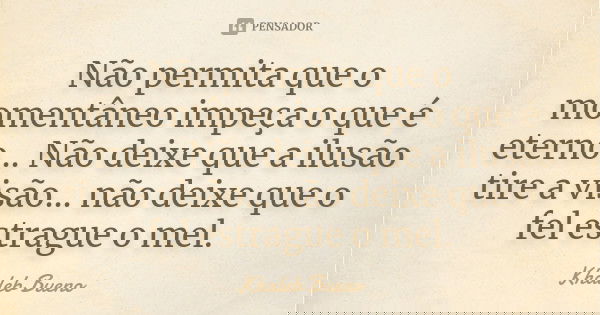 PENSADOR
Não permita que o
momentâneo impeça o que é
eterno... Não deixe que a ilusão
tire a visão... não deixe que o
fel estrague o mel.
Khaleb Bueno